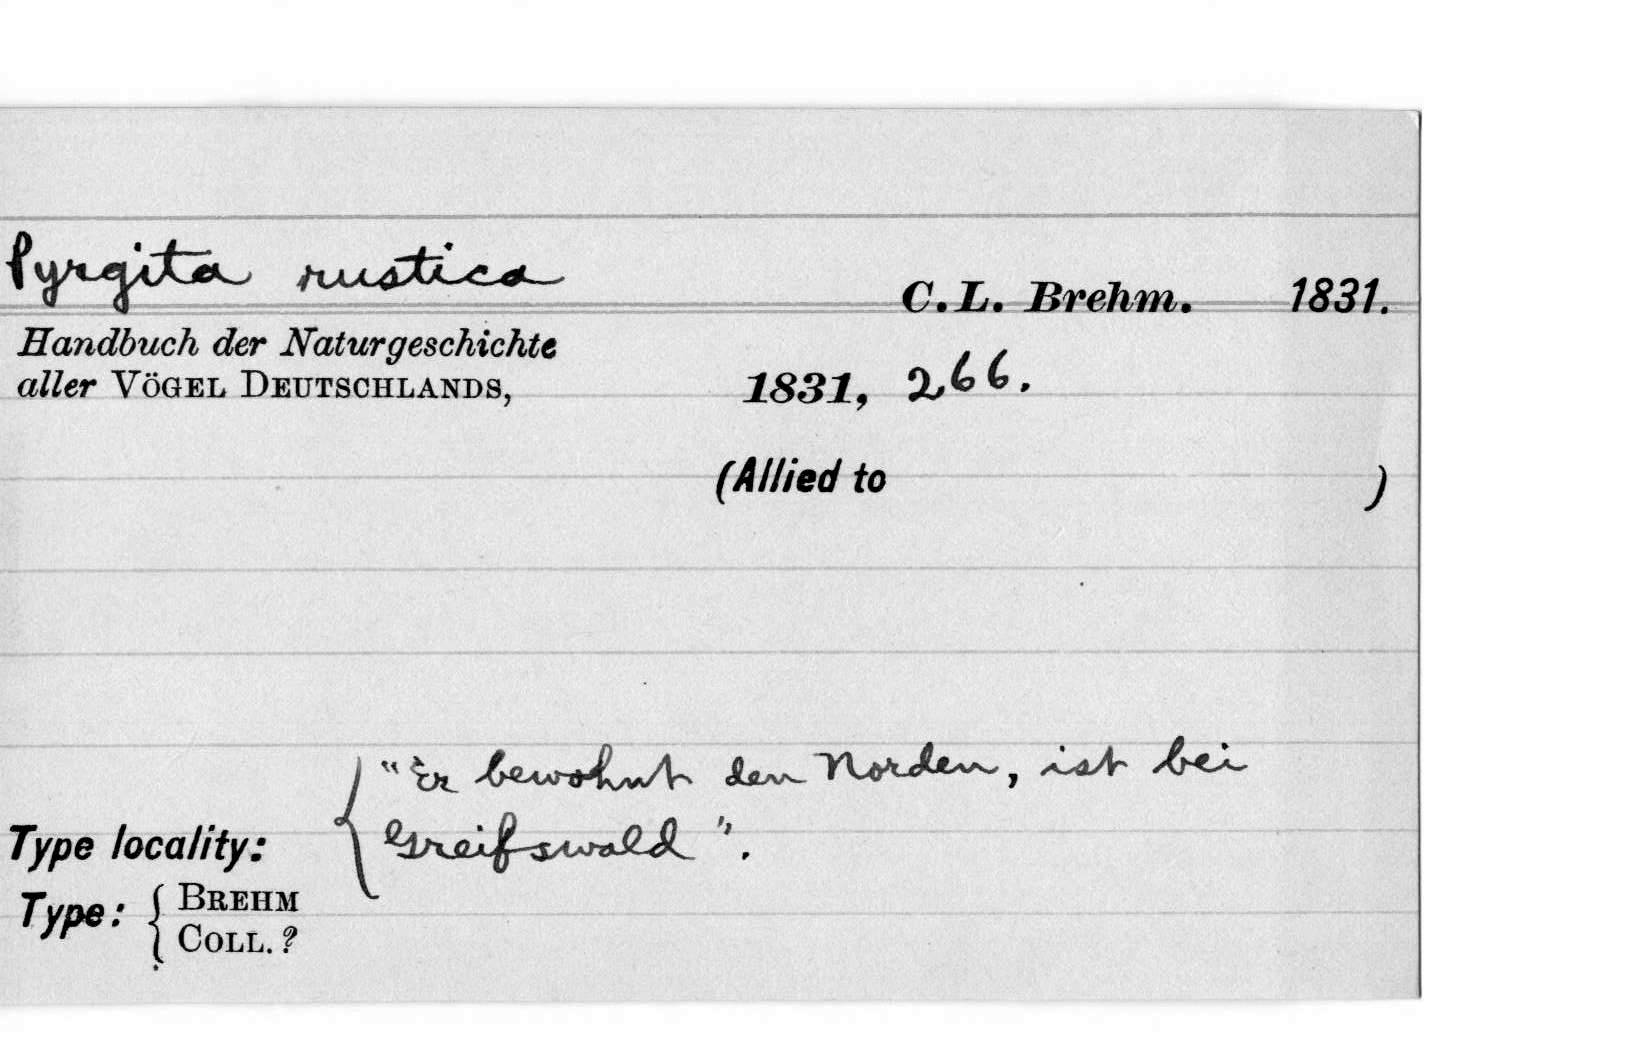 Pyrgita rustica
C. L. Brehm. 1831.
Handbuch der Naturgeschichte
aller VÖGEL DEUTSCHLANDS, 1831, 266.
(Allied to )
"Er bewohnt den Norden, ist bei
Greifswald".
Type locality:
Type: { BREHM
COLL. ?